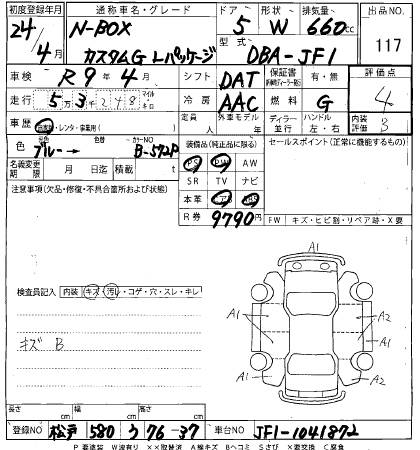 初度登録年月 通称車名・グレード ドア 形状 排気量 出品NO
24/4月 N-BOX カスタムG Lパッケージ 5 W 660cc 117
型式 DBA-JF1
車検 R9年4月 シフト DAT 保証書 有・無 評価点 4
走行 5万3千248 マイル キロ 冷房 AAC 燃料 G
車歴 自家用・レンタ・事業用( ) 定員 人 外車モデル 年 ディーラー 並行 ハンドル 左・右 内装評価 3
色 ブルー→ 色替 カラーNO B-572P 装備品(純正品に限る) セールスポイント(正常に機能するもの)
名義変更期限 月 日迄 積載 t PS PW AW
SR TV ナビ
注意事項(欠品・修復・不具合箇所および状態) 本革 エアB ABS
R券 9790円 FW キズ・ヒビ割・リペア跡・X要
A1
検査員記入 内装 キズ・汚レ・コゲ・穴・スレ・キレ
A1 A2
キズ B
A1 A2
A1
長さ cm 幅 cm 高さ cm
登録NO 松戸 580 う 76-37 車台NO JF1-1041872
P 要塗装 W波有り ××取替済 A線キズ Bヘコミ Sさび ×要交換 C腐食